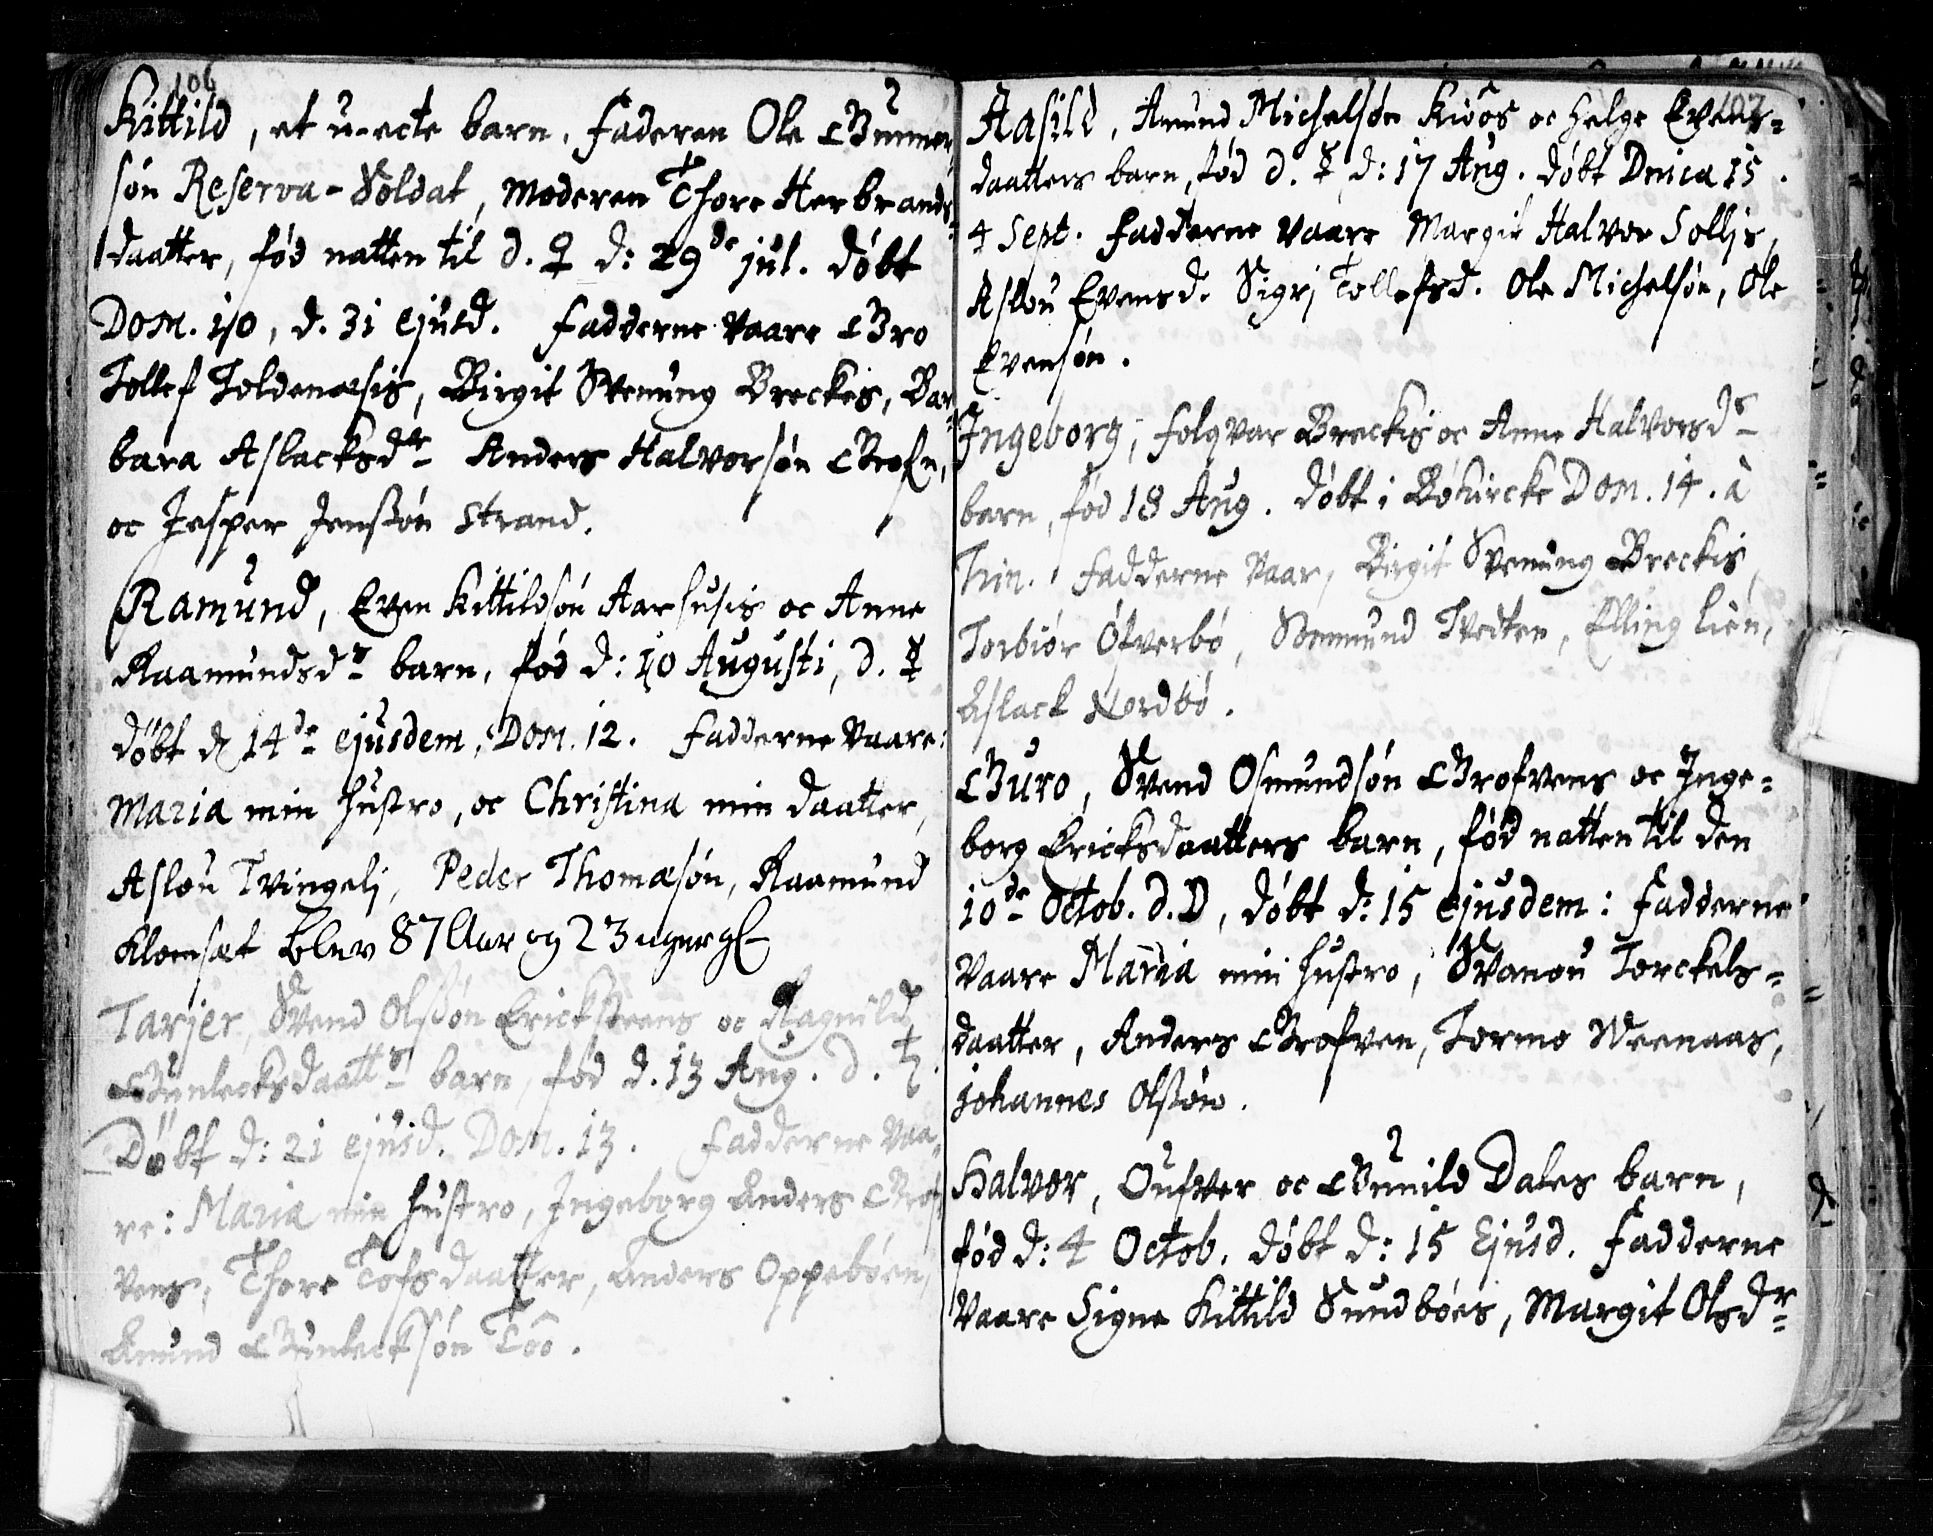 106
Kittild, et u-ecte barn. Faderen Ole Gunner-
søn Reserva-Soldat, Moderen Thore Herbrands-
daatter, fød natten til d. ♀ d: 29de jul. døbt
Dom. 10, d. 31 ejusd. Fadderne vaare Gro
Tollef Toldenæsis, Birgit Svenung Breckes, Bar-
bara Aslacksdr Anders Halvorsøn
oc Jesper Jensøn Strand.
Ramund, Even Kittilsøn Aarhusis oc Anne
Raamundsdr barn, fød d: 10 Augusti, d. ☿
døbt d 14de ejusdem, Dom. 12. Fadderne vaare:
Maria min hustro, oc Christina min daatter,
Aslou Tvingelj, Peder Thomæsøn, Raamund
Klomset blev 87 Aar og 23 uger gl
Tarjer, Svend Olssøn Ericksteens oc Ragnild
Gunlecksdaatts barn, fød d. 13 Aug. d. ♄
Døbt d: 21 ejusd. Dom. 13. Fadderne vaa-
re: Maria min hustro, Ingeborg Anders Grof-
vens, Thore Tofsdaatter, Anders Oppebøen,
Amund Gunlecksøn Too.
107
Aasild, Amund Michelsøn Kioos oc Helge Evens-
daatters barn, fød d. ☿ d: 17 Aug. døbt Dnica 15.
4 Sept. Fadderne vaare Margit Halvor Solljs,
Aslou Evensd. Sigrj Tollefsd. Ole Michelsøn, Ole
Evensøn.
Ingeborg, Folqvar Breckis oc Anne Halvorsds
barn, fød 18 Aug. døbt i Bøkircke Dom. 14. à
Trin. Fadderne vaar, Birgit Svenung Breckis,
Torbiør Øfverbø, Semund Tvedten, Elling Lien,
Aslack Nordbø.
Guro, Svend Osmundsøn Grofvens oc Inge-
borg Ericksdaatters barn, fød natten til den
10de Octob. d. D, døbt d: 15 ejusdem: Fadderne
vaare Maria min hustro, Svanou Torckels-
daatter, Anders Grofven, Tormo Weenaas,
Johannes Olssøn.
Halvor, Oufver oc Gunild Dales barn,
fød d: 4 Octob. døbt d: 15 Ejusd. Fadderne
vaare Signe Kittild Sundbøes, Margit Olsdr